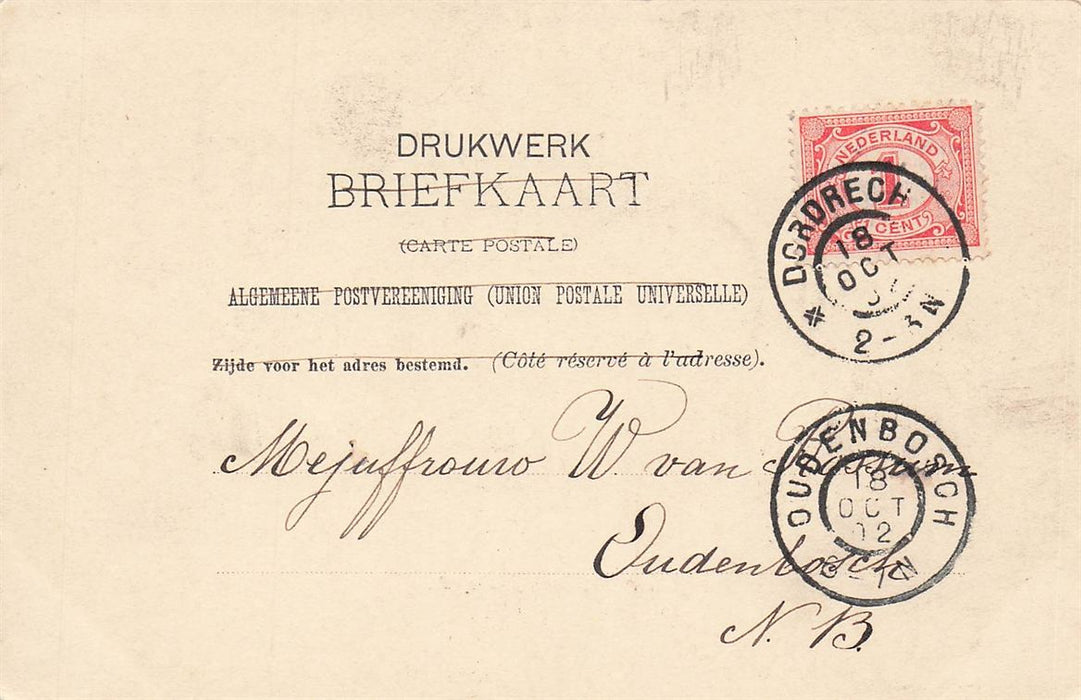 DRUKWERK
BRIEFKAART
(CARTE POSTALE)
ALGEMEENE POSTVEREENIGING (UNION POSTALE UNIVERSELLE)
Zijde voor het adres bestemd. (Côté réservé à l'adresse).
NEDERLAND
1
CENT
DORDRECH
18
OCT
2-3N
Mejuffrouw W van
Oudenbosch
N.B.
OUDENBOSCH
18
OCT
02